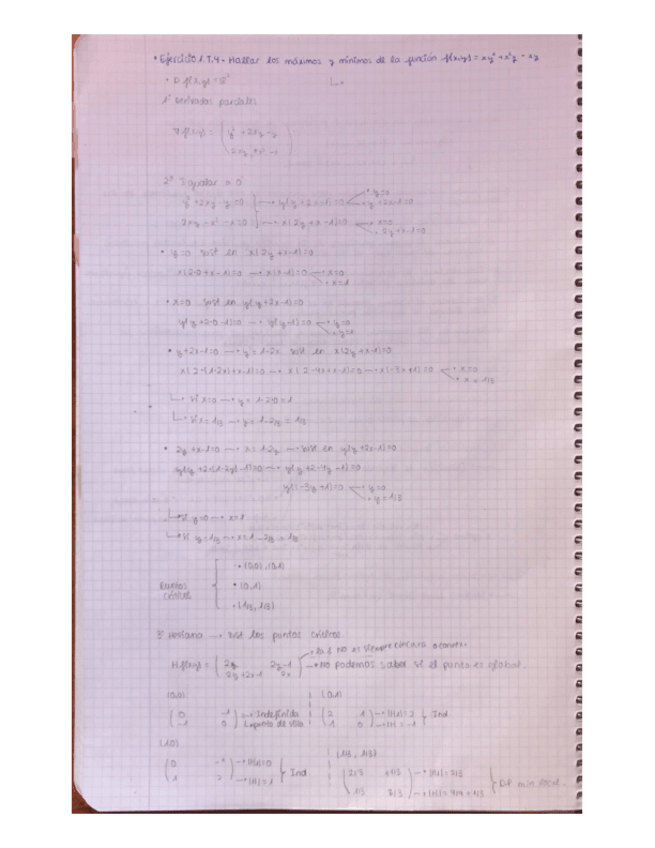 • Ejercicio 1.T.4 - Hallar los máximos y mínimos de la función f(x,y) = xy² + x²y - xy
• D f(x,y) = ℝ²
1º Derivadas parciales
∇f(x,y) = ( y² + 2xy - y
2xy + x² - x )
2º Igualar a 0
y² + 2xy - y = 0 → y(y + 2x - 1) = 0 • y=0 • y + 2x - 1 = 0
2xy - x² - x = 0 → x(2y + x - 1) = 0 • x=0 • 2y + x - 1 = 0
• y=0 sust en x(2y + x - 1) = 0
x(2·0 + x - 1) = 0 → x(x-1) = 0 • x=0 • x=1
• x=0 sust en y(y + 2x - 1) = 0
y(y + 2·0 - 1) = 0 → y(y-1) = 0 • y=0 • y=1
• y + 2x - 1 = 0 → y = 1 - 2x sust en x(2y + x - 1) = 0
x(2·(1-2x) + x - 1) = 0 → x(2 - 4x + x - 1) = 0 → x(-3x + 1) = 0 • x=0 • x = 1/3
↳ Si x=0 → y = 1 - 2·0 = 1
↳ Si x = 1/3 → y = 1 - 2/3 = 1/3
• 2y + x - 1 = 0 → x = 1 - 2y → sust en y(y + 2x - 1) = 0
y(y + 2·(1-2y) - 1) = 0 → y(y + 2 - 4y - 1) = 0
y(-3y + 1) = 0 • y=0 • y = 1/3
↳ Si y=0 → x=1
↳ Si y = 1/3 → x = 1 - 2/3 = 1/3
Puntos críticos
• (0,0), (0,1)
• (0,1)
• (1/3, 1/3)
3º Hessiana → sust los puntos críticos
Hf(x,y) = ( 2y 2y-1
2y+2x-1 2x ) → No podemos saber si el punto es global.
(0,0) (0,1)
( 0 -1
-1 0 ) → Indefinida ↳ punto de silla
( 2 1
1 0 ) → |H1| = 2 → |H| = -1 Ind
(1,0) (1/3, 1/3)
( 0 -1
1 2 ) → |H1| = 0 → |H| = 1 Ind
→ |H1| = 2/3
1/3 2/3
DP min local.